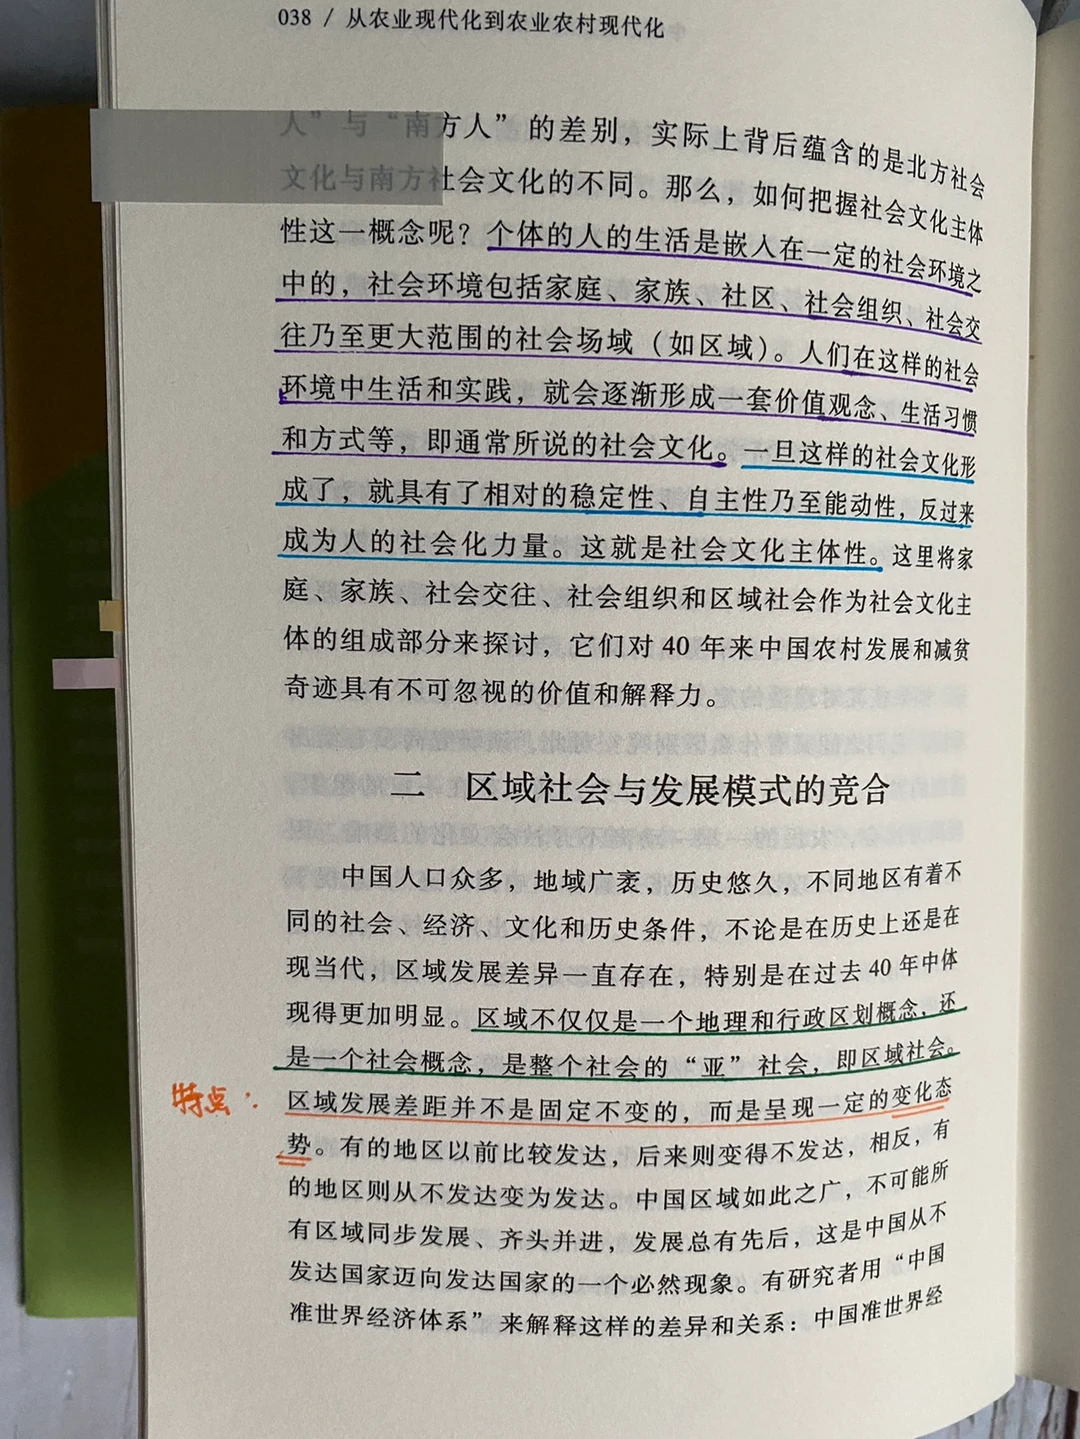 038 / 从农业现代化到农业农村现代化
人”与“南方人”的差别，实际上背后蕴含的是北方社会
文化与南方社会文化的不同。那么，如何把握社会文化主体
性这一概念呢？个体的人的生活是嵌入在一定的社会环境之
中的，社会环境包括家庭、家族、社区、社会组织、社会交
往乃至更大范围的社会场域（如区域）。人们在这样的社会
环境中生活和实践，就会逐渐形成一套价值观念、生活习惯
和方式等，即通常所说的社会文化。一旦这样的社会文化形
成了，就具有了相对的稳定性、自主性乃至能动性，反过来
成为人的社会化力量。这就是社会文化主体性。这里将家
庭、家族、社会交往、社会组织和区域社会作为社会文化主
体的组成部分来探讨，它们对 40 年来中国农村发展和减贫
奇迹具有不可忽视的价值和解释力。
二 区域社会与发展模式的竞合
中国人口众多，地域广袤，历史悠久，不同地区有着不
同的社会、经济、文化和历史条件，不论是在历史上还是在
现当代，区域发展差异一直存在，特别是在过去 40 年中体
现得更加明显。区域不仅仅是一个地理和行政区划概念，还
是一个社会概念，是整个社会的“亚”社会，即区域社会。
特点：
区域发展差距并不是固定不变的，而是呈现一定的变化态
势。有的地区以前比较发达，后来则变得不发达，相反，有
的地区则从不发达变为发达。中国区域如此之广，不可能所
有区域同步发展、齐头并进，发展总有先后，这是中国从不
发达国家迈向发达国家的一个必然现象。有研究者用“中国
准世界经济体系”来解释这样的差异和关系：中国准世界经